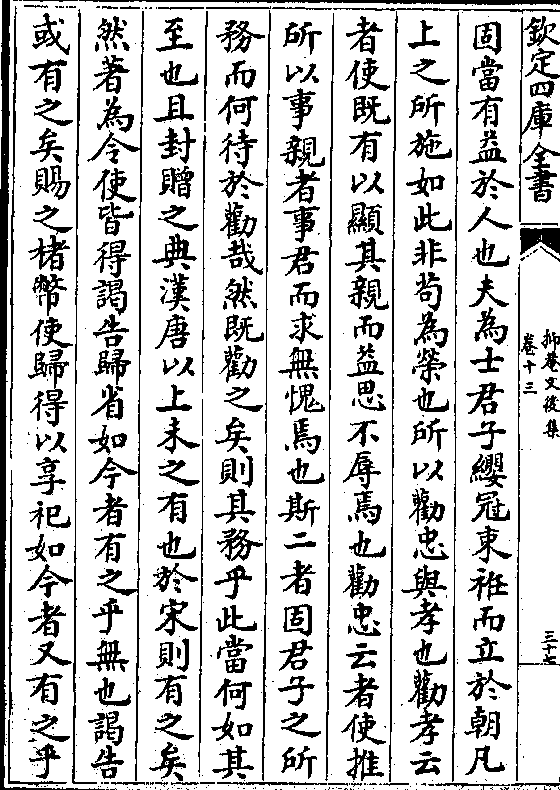 欽定四庫全書
抑菴文後集
卷十三
三十七
固當有益於人也夫為士君子纓冠束袵而立於朝凡
上之所施如此非苟為榮也所以勸忠與孝也勸孝云
者使既有以顯其親而益思不辱焉也勸忠云者使推
所以事親者事君而求無愧焉也斯二者固君子之所
務而何待於勸哉然既勸之矣則其務乎此當何如其
至也且封贈之典漢唐以上未之有也於宋則有之矣
然著為令使皆得謁告歸省如今者有之乎無也謁告
或有之矣賜之楮幣使歸得以享祀如今者又有之乎